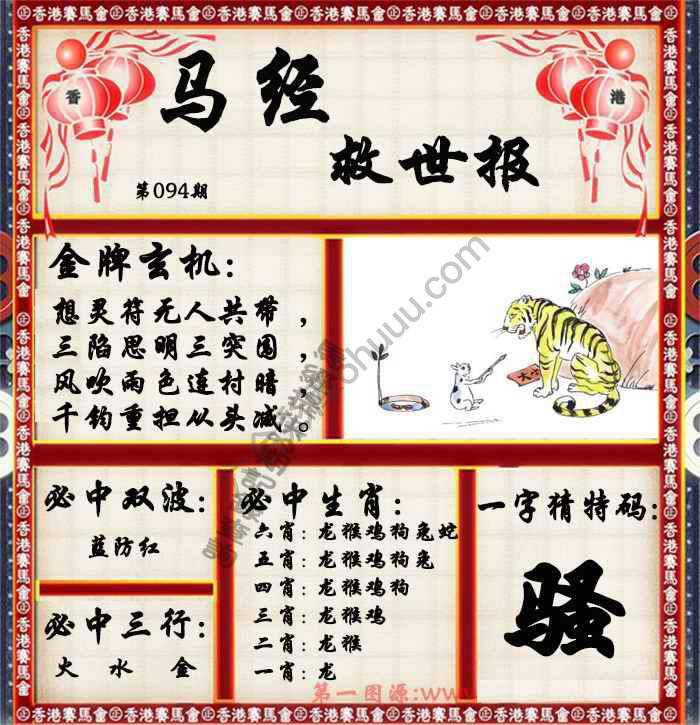 香港賽馬會㊣香港賽馬會㊣香港賽馬會㊣香港賽馬會㊣香港賽馬會㊣香港賽馬會
香
港
马经
救世报
第094期
金牌玄机：
想灵符无人共带，
三陷思明三突围，
风吹雨色连村暗，
千钧重担从头减。
大小
必中双波：
蓝防红
必中三行：
火 水 金
必中生肖：
六肖：龙猴鸡狗兔蛇
五肖：龙猴鸡狗兔
四肖：龙猴鸡狗
三肖：龙猴鸡
二肖：龙猴
一肖：龙
一字猜特码：
骚
第一图源:www